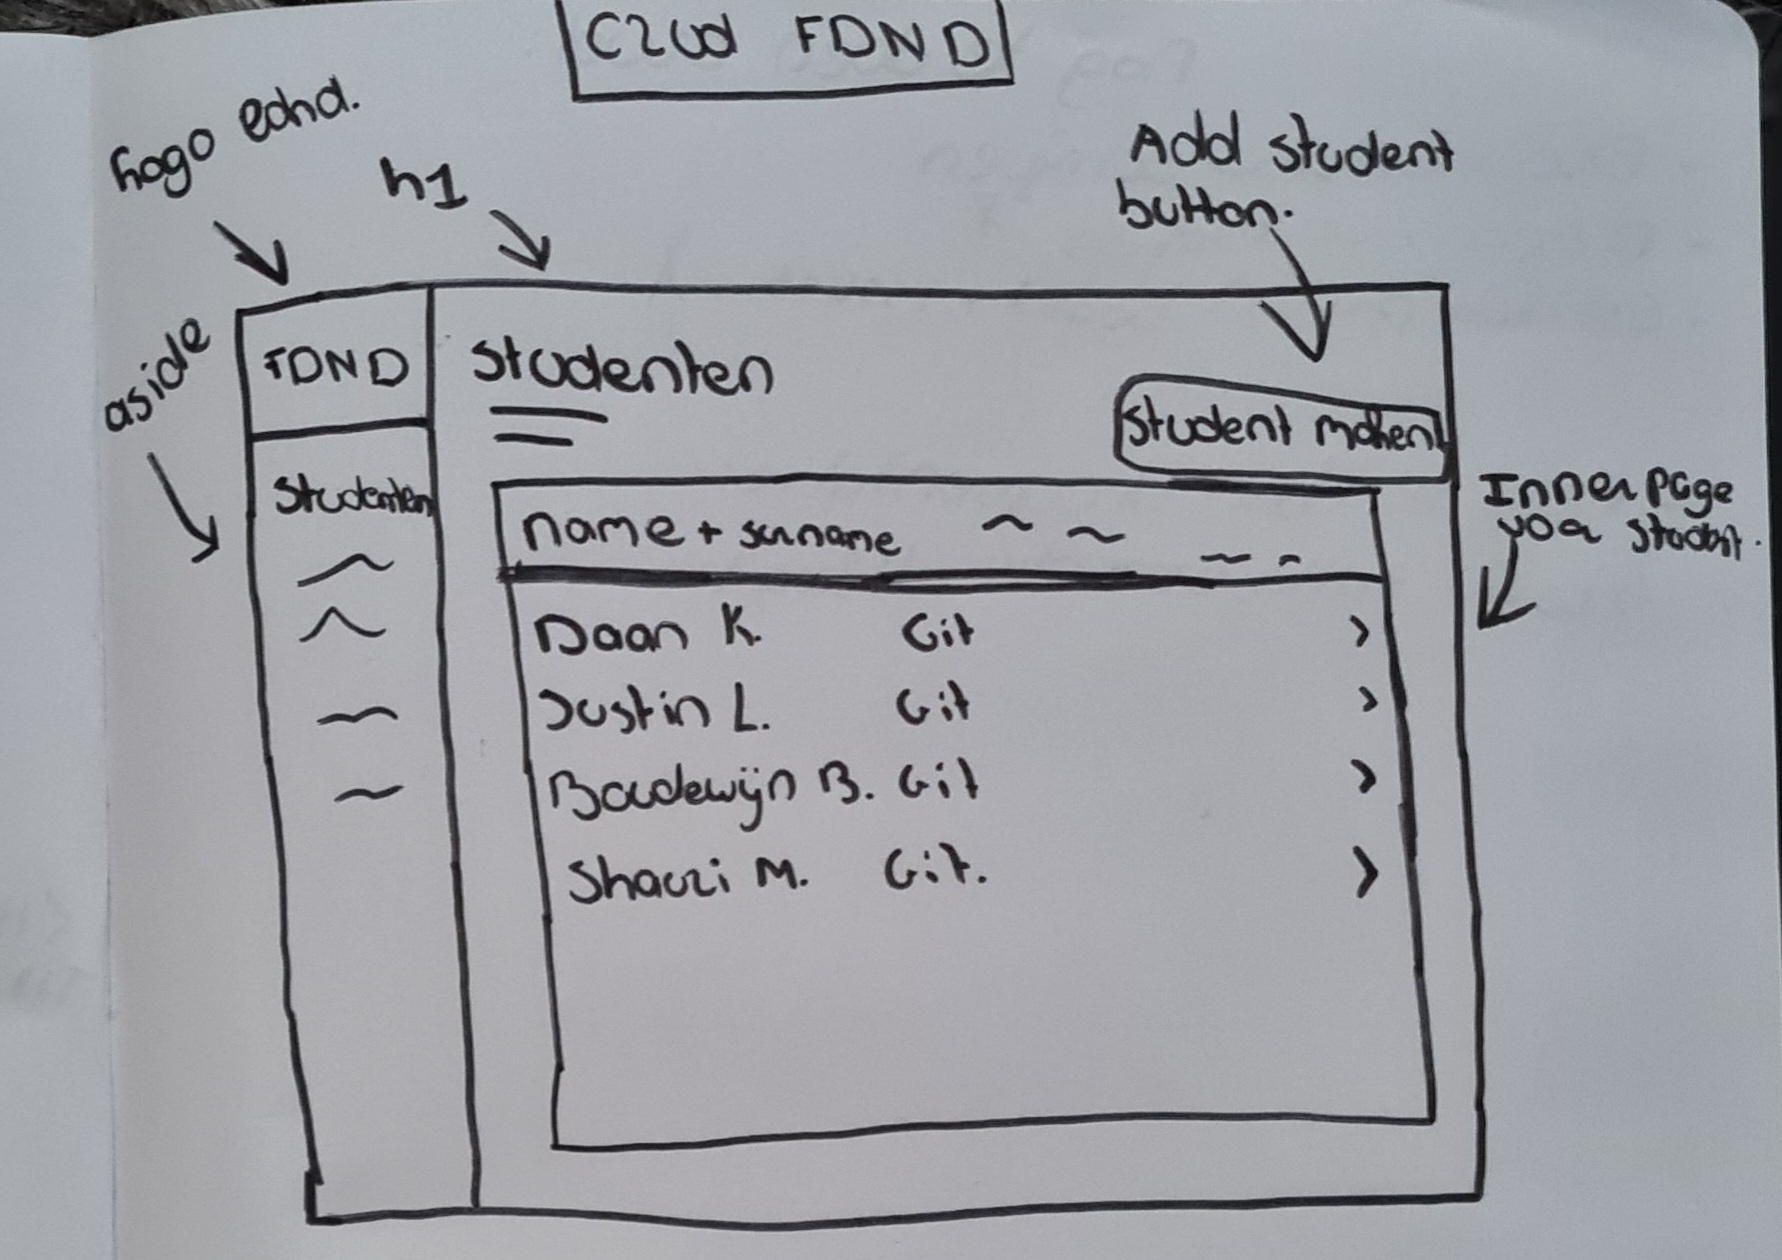 C2ud FDND
Logo
h1
Add student
button.
aside
FDND
Studenten
Student maken
Studenten
name + surname
Inner page
voor student.
Daan K. Git >
Justin L. Git >
Boudewijn B. Git >
Shauzi M. Git. >